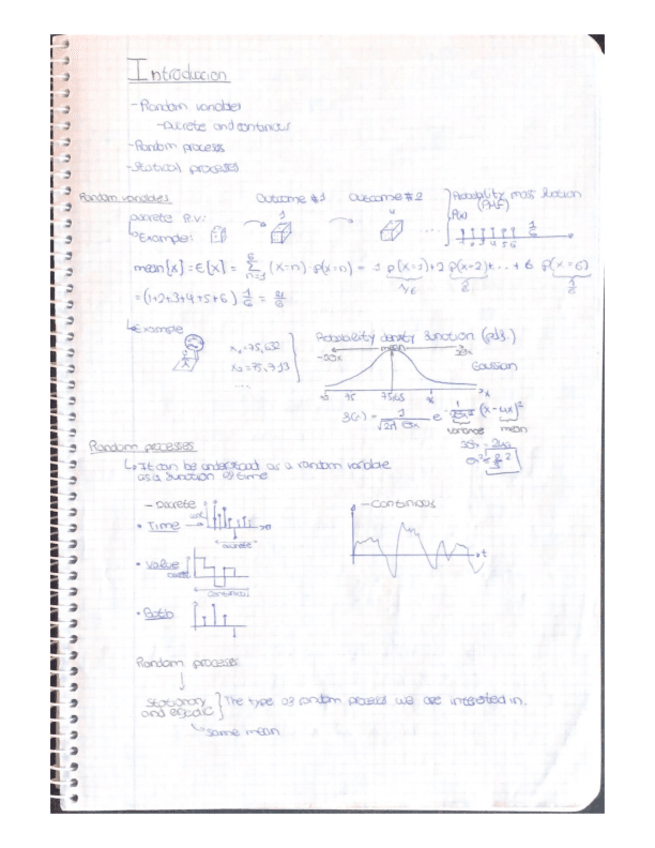 Introduccion
- Random variables
- Discrete and continous
- Random process
- Statical processes
Random variables
Outcome #1
Outcome #2
Probability mass function
(PMF)
Discrete R.V.:
P(x)
Example:
3
4
....
1 2 3 4 5 6
1/6
mean{x} = E[x] = Σ (x=n) p(x=n) = 1 p(x=1)+2 p(x=2)+...+ 6 p(x=6)
n=1
6
1/6
= (1+2+3+4+5+6) 1/6 = 21/6
Example
x₁=75,632
x₂=75,713
...
Probability density function (pdf.)
mean
Gaussian
75
x
variance
mean
Random processes
It can be understood as a random variable
as a function of time
- Discrete
- Continous
• Time
"discrete"
t
• Value
continous
• Both
Random processes
Stationary
and ergodic } The type of random process we are interested in.
same mean